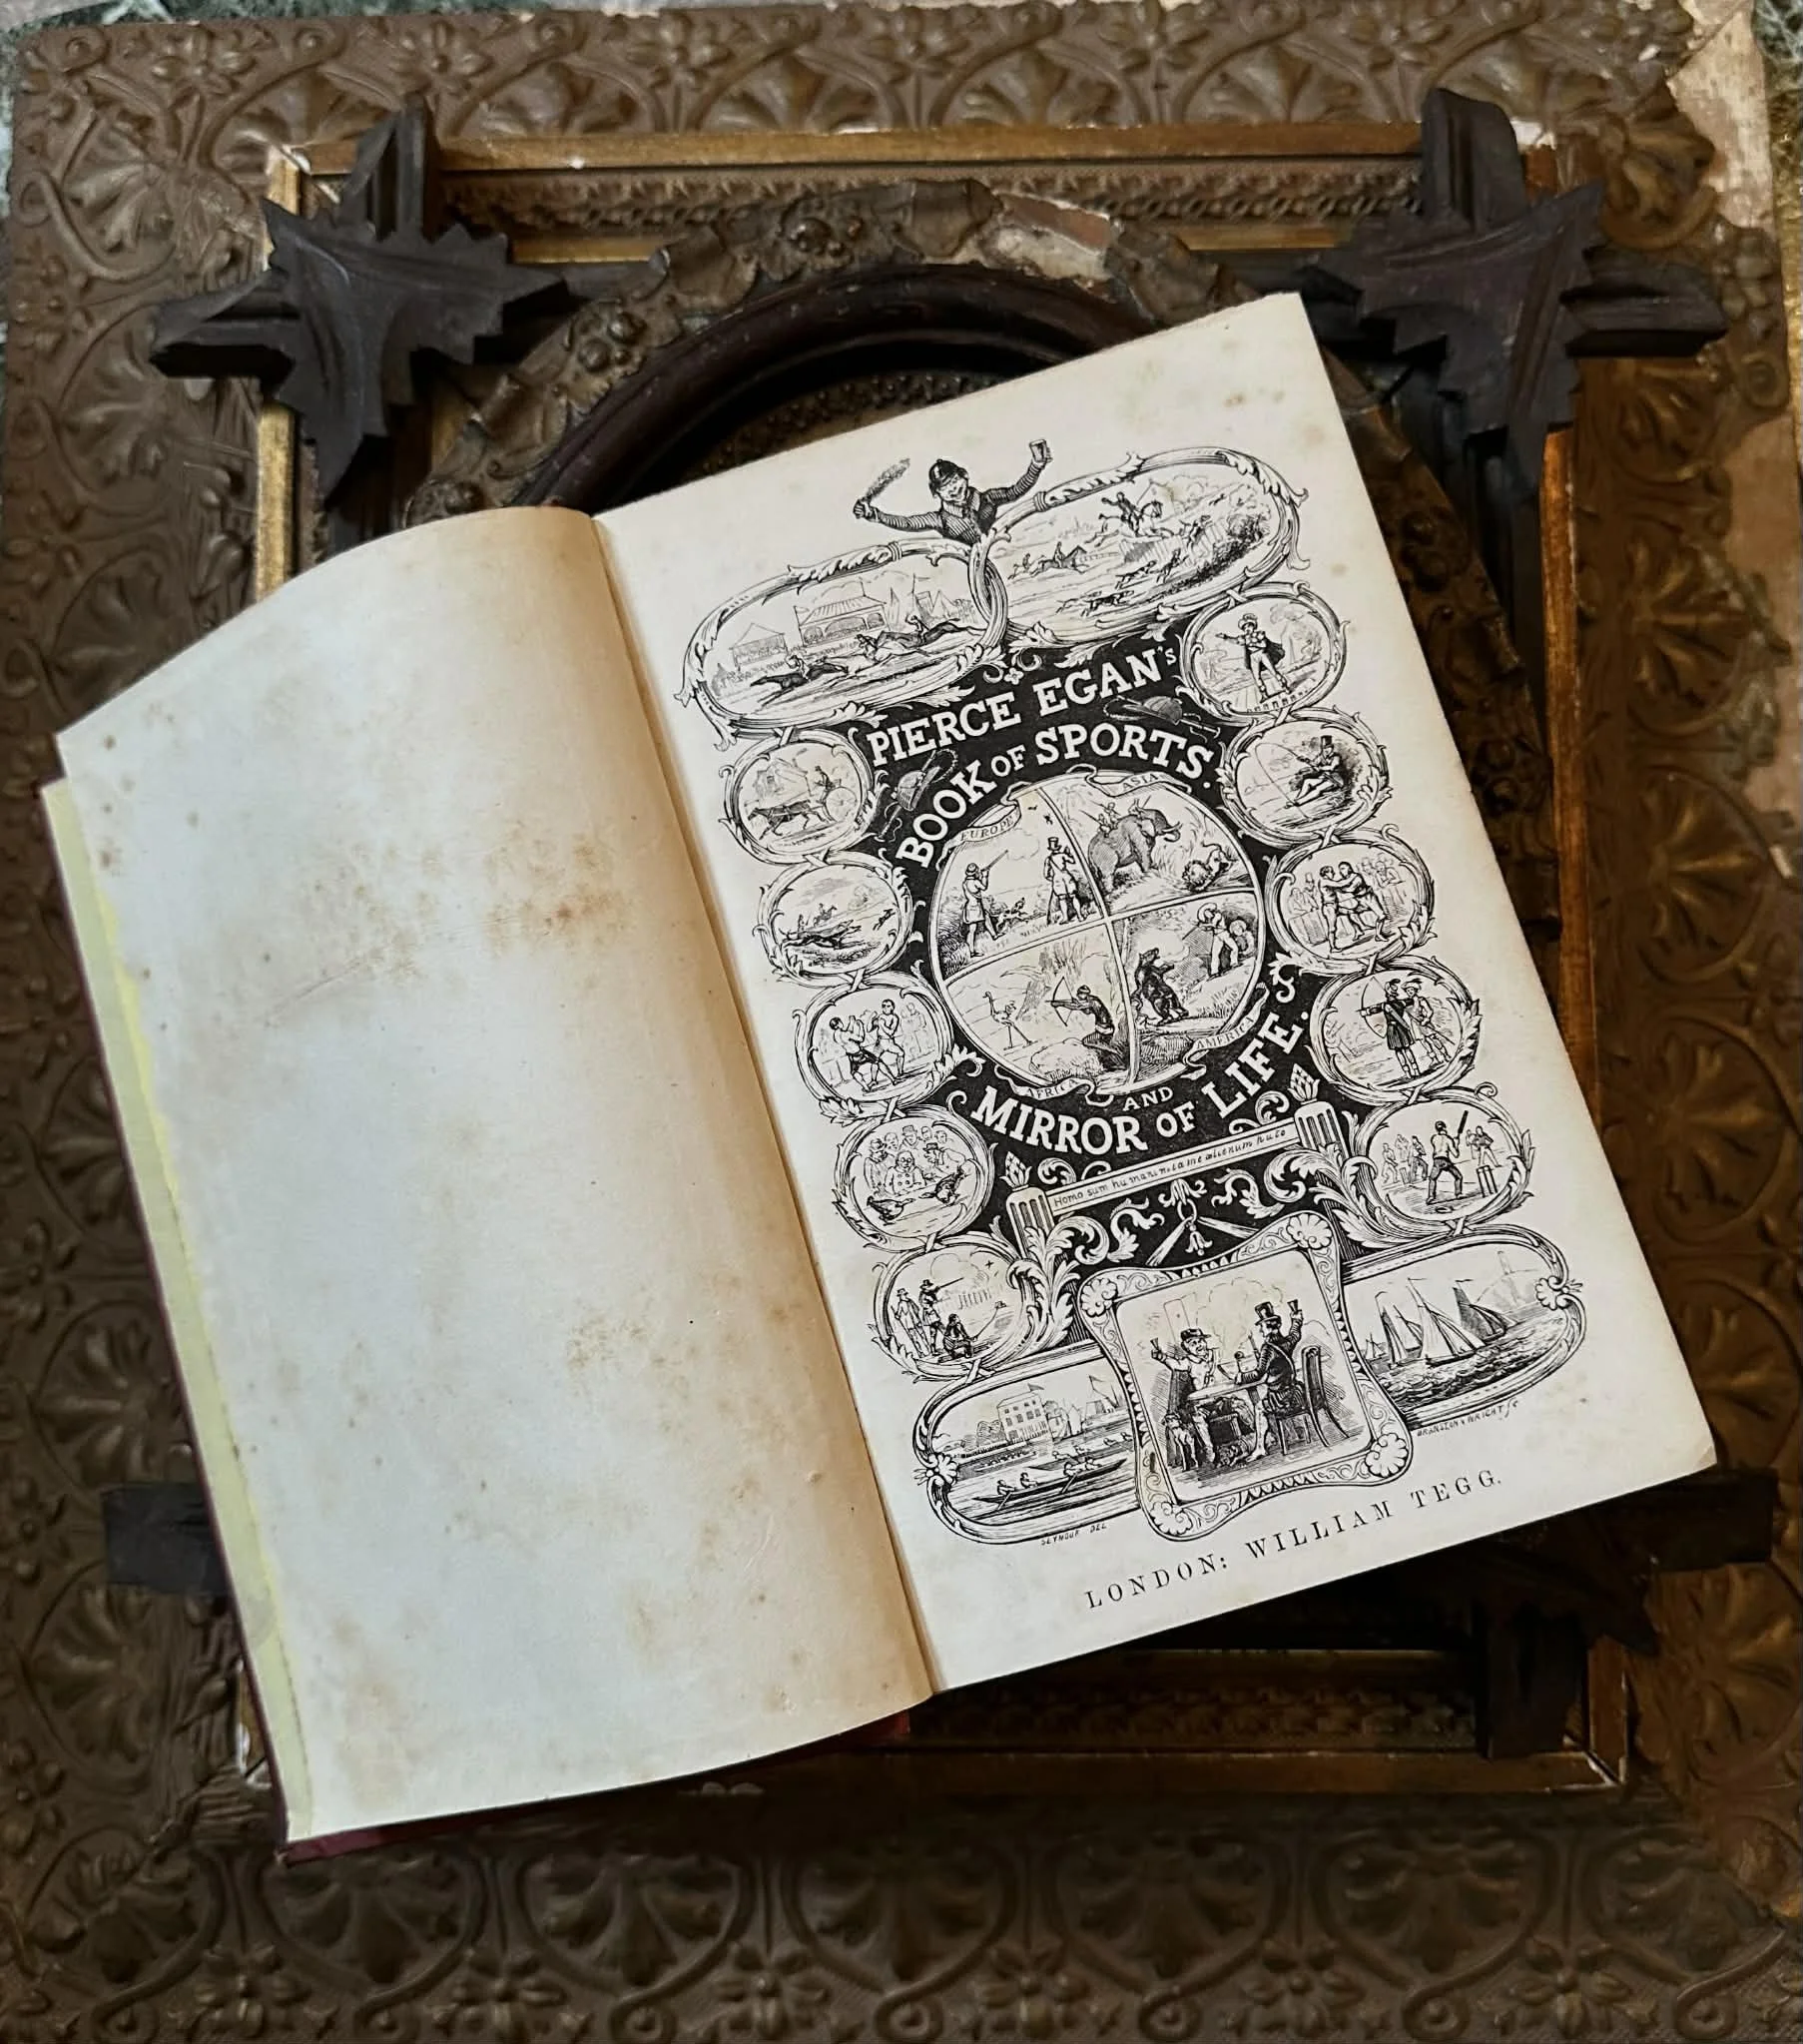 PIERCE EGAN's
BOOK OF SPORTS.
EUROPE
ASIA
AFRICA
AMERICA
AND
MIRROR OF LIFE.
Homo sum humani nil a me alienum puto
SEYMOUR DEL
BRANSTON & WRIGHT Sc
LONDON: WILLIAM TEGG.